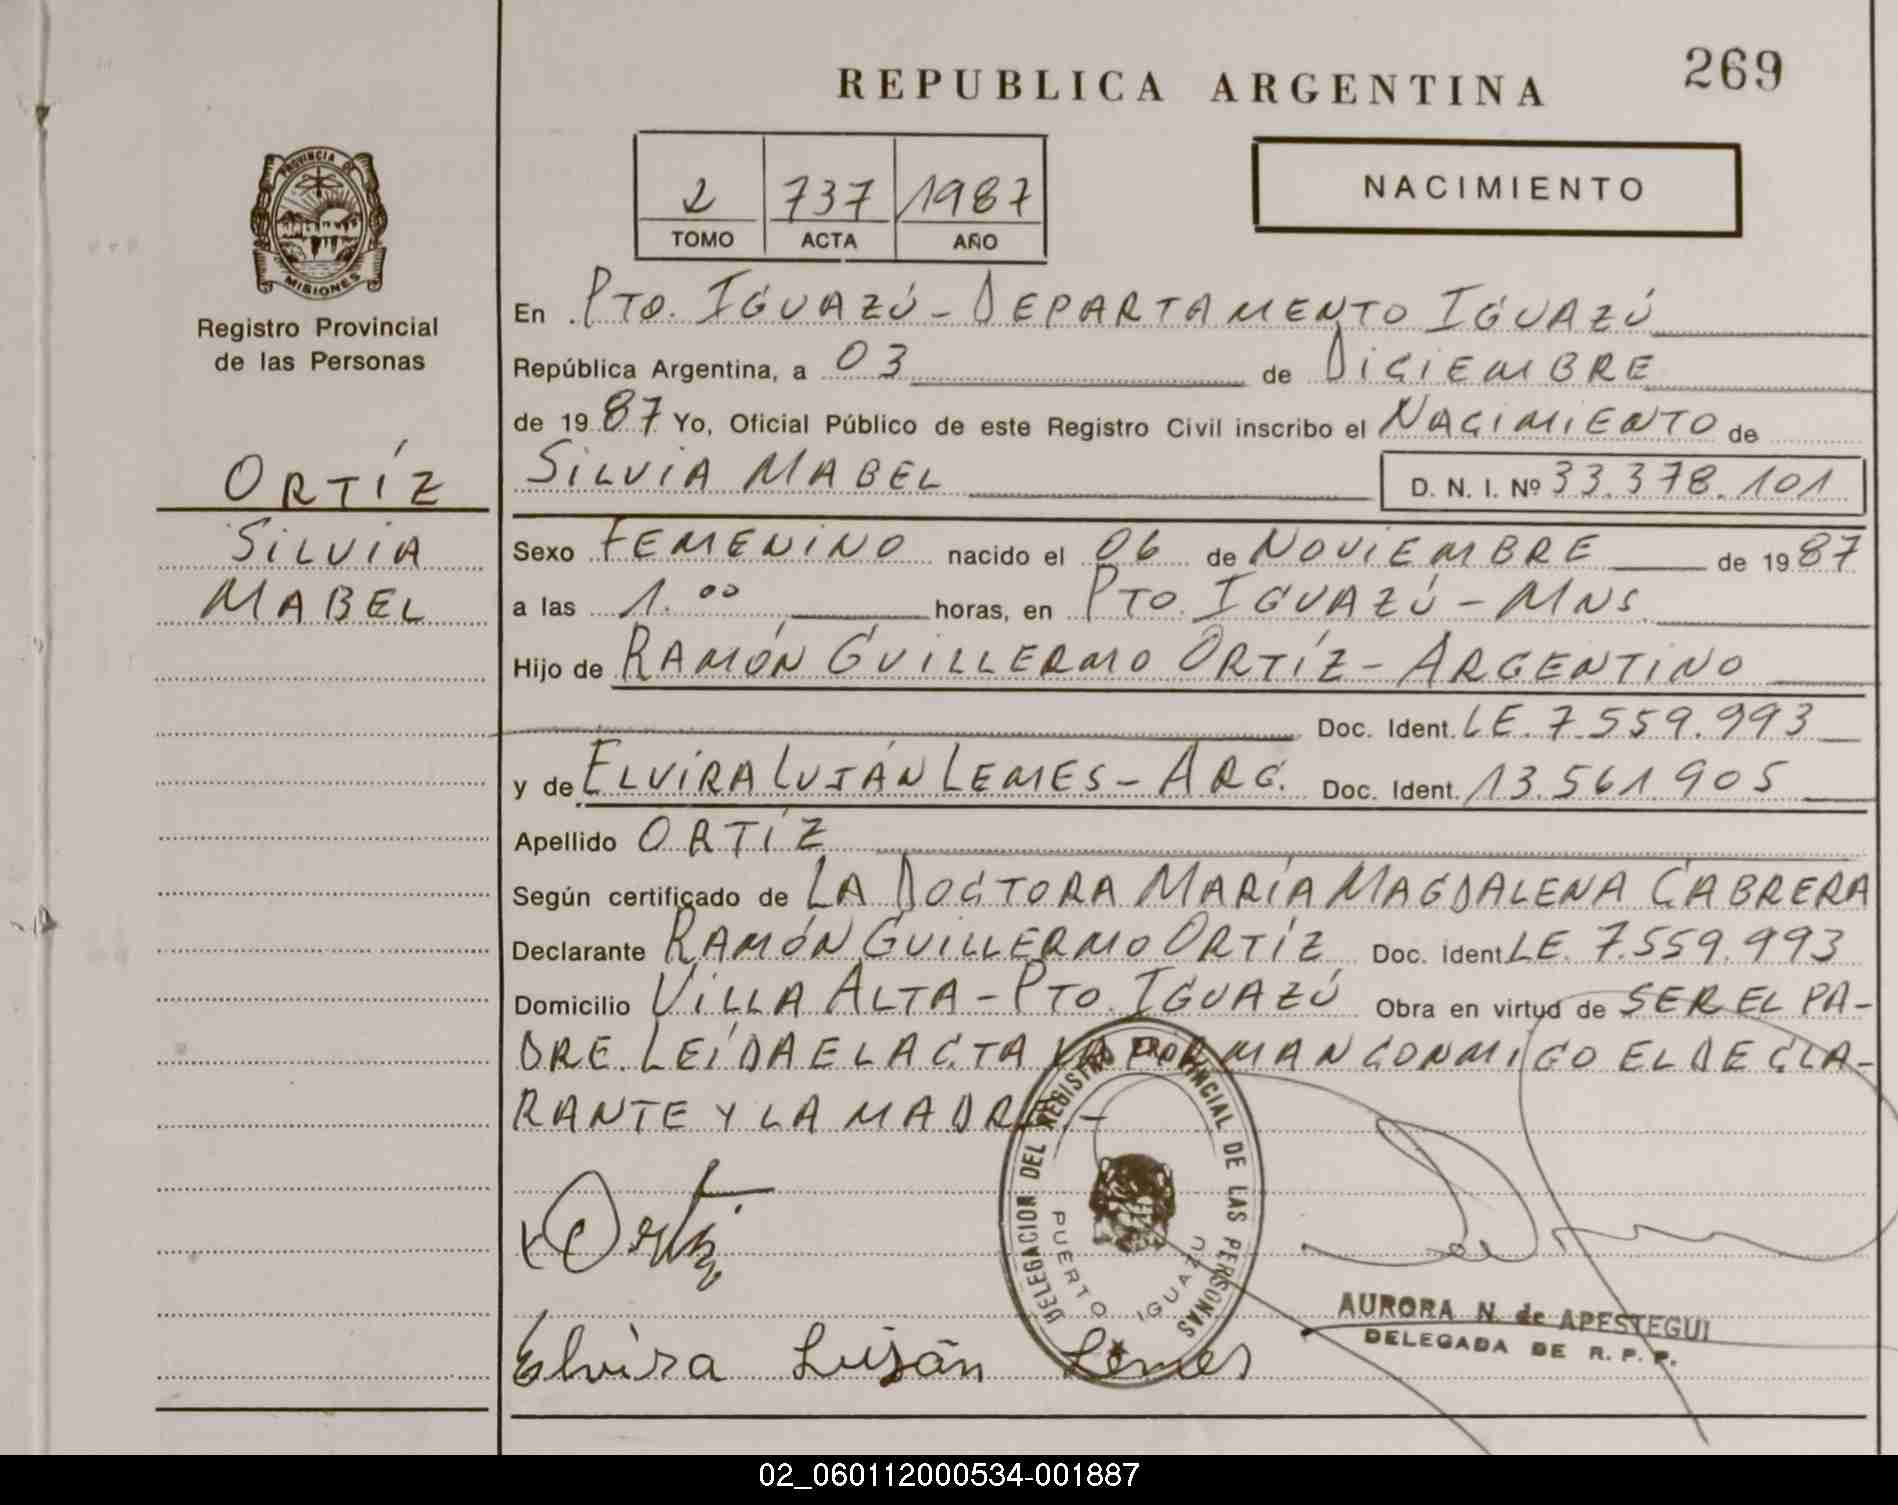 269
REPUBLICA ARGENTINA
NACIMIENTO
2 737 1987
TOMO ACTA AÑO
PROVINCIA DE
MISIONES
Registro Provincial
de las Personas
ORTÍZ
SILVIA
MABEL
En PTO. IGUAZÚ - DEPARTAMENTO IGUAZÚ
República Argentina, a 03 de DICIEMBRE
de 1987 Yo, Oficial Público de este Registro Civil inscribo el NACIMIENTO de
SILVIA MABEL D. N. I. Nº 33.378.101
Sexo FEMENINO nacido el 06 de NOVIEMBRE de 1987
a las 1.00 horas, en PTO. IGUAZÚ - MNS.
Hijo de RAMÓN GUILLERMO ORTÍZ - ARGENTINO
Doc. Ident. LE. 7.559.993
y de ELVIRA LUJÁN LEMES - ARG. Doc. Ident. 13.561.905
Apellido ORTÍZ
Según certificado de LA DOCTORA MARÍA MAGDALENA CABRERA
Declarante RAMÓN GUILLERMO ORTÍZ Doc. ident. LE. 7.559.993
Domicilio VILLA ALTA - PTO. IGUAZÚ Obra en virtud de SER EL PA-
DRE. LEÍDA EL ACTA LA FIRMAN CONMIGO EL DECLA-
RANTE Y LA MADRE. -
DELEGACION DEL REGISTRO PROVINCIAL DE LAS PERSONAS
PUERTO IGUAZU
Ortiz
AURORA N. de APESTEGUI
DELEGADA DE R. P. P.
Elvira Luján Lemes
02_060112000534-001887